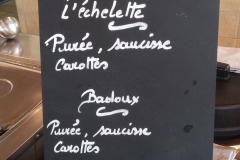 L'échelette
Purée, saucisse
Carottes
Badoux
Purée, saucisse
Carottes